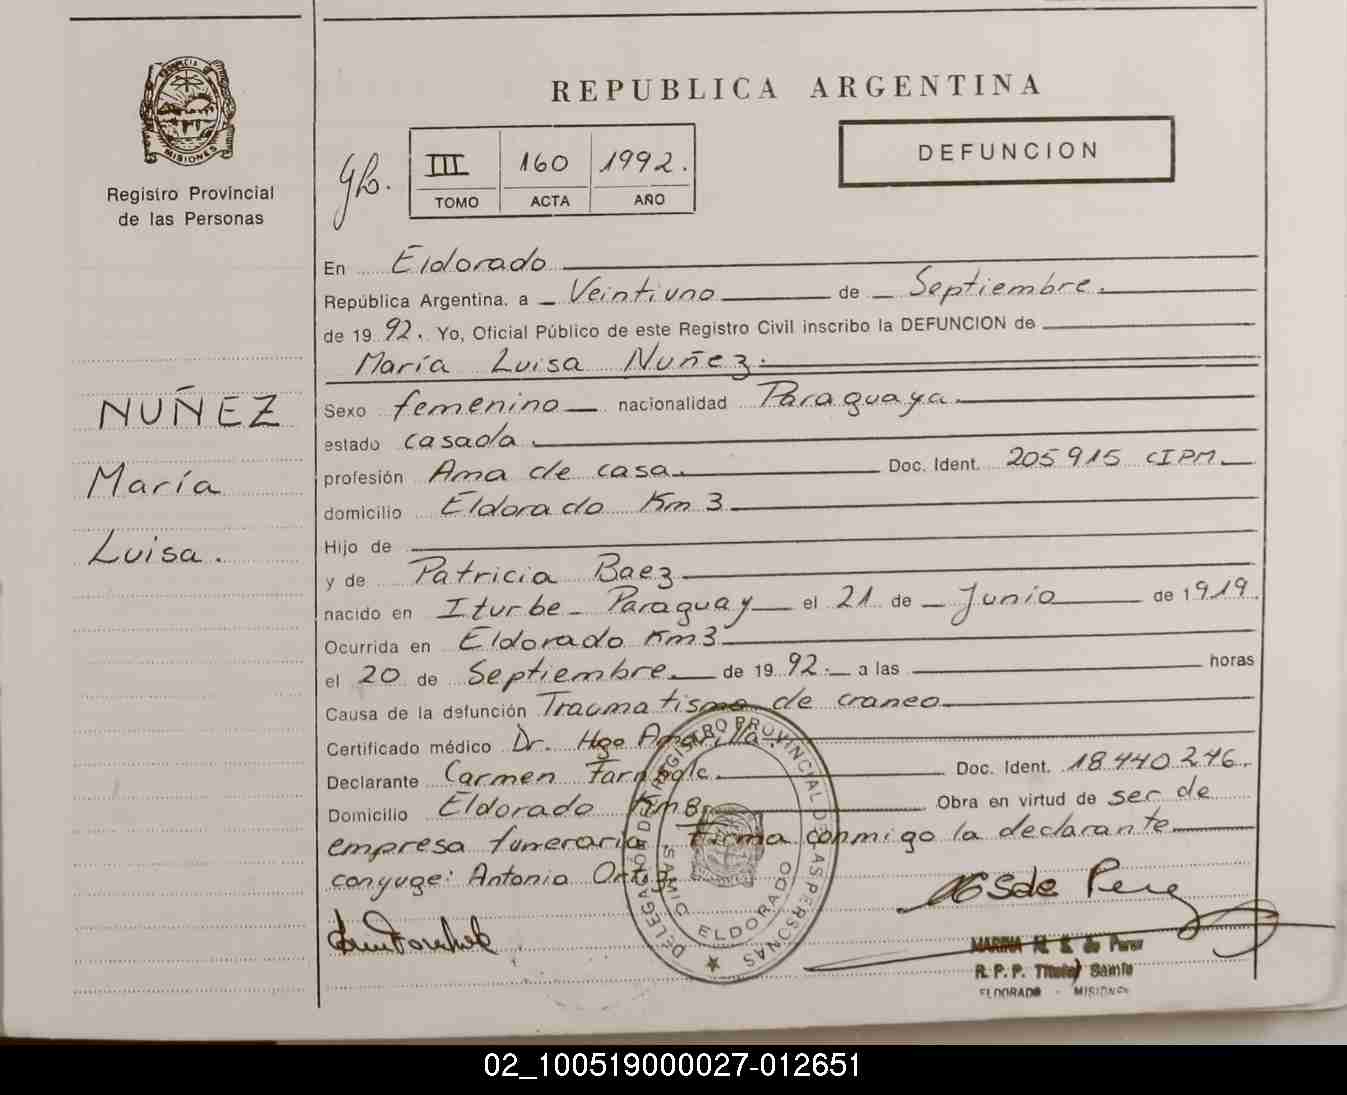 PROVINCIA
MISIONES
Registro Provincial
de las Personas
NUÑEZ
María
Luisa.
REPUBLICA ARGENTINA
III 160 1992.
TOMO ACTA AÑO
DEFUNCION
En Eldorado
República Argentina, a Veintiuno de Septiembre.
de 19 92. Yo, Oficial Público de este Registro Civil inscribo la DEFUNCION de
María Luisa Nuñez.
Sexo femenino nacionalidad Paraguaya.
estado casada.
profesión Ama de casa. Doc. Ident. 205915 CIPM
domicilio Eldorado Km 3
Hijo de
y de Patricia Baez
nacido en Iturbe - Paraguay el 21 de Junio de 1919.
Ocurrida en Eldorado Km3
el 20 de Septiembre de 19 92. a las horas
Causa de la defunción Traumatismo de craneo
Certificado médico Dr. Hgo Amarilla.
Declarante Carmen Doc. Ident. 18.440.246.
Domicilio Eldorado Km 8, Obra en virtud de ser de
empresa funeraria. Firma conmigo la declarante
conyuge: Antonio Ortiz
DELEGACION DE REGISTRO PROVINCIAL DE LAS PERSONAS
SAMIC ELDORADO
MARINA de Perez
R. P. P. Titular Samic
ELDORADO - MISIONES
02_100519000027-012651